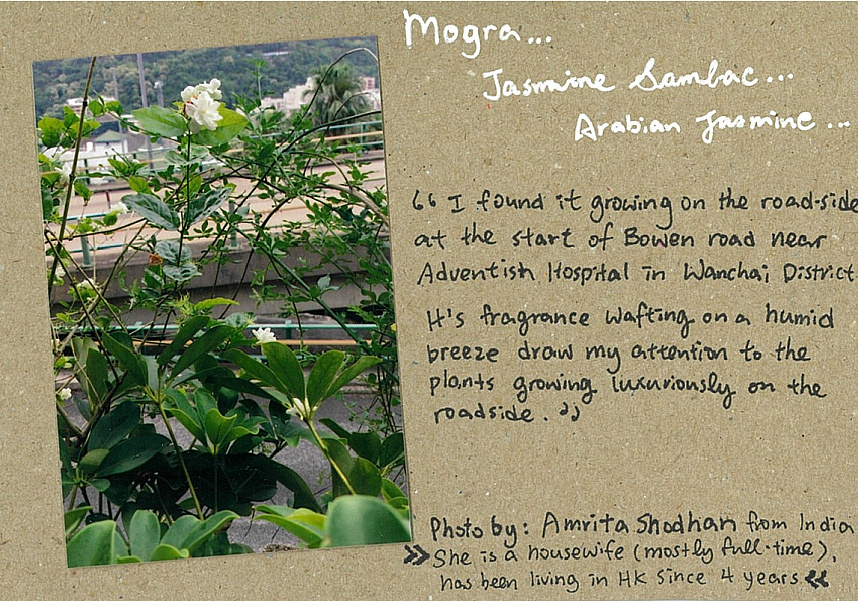 Mogra...
Jasmine Sambac...
Arabian Jasmine...
“ I found it growing on the road-side
at the start of Bowen road near
Adventish Hospital in Wanchai District
It's fragrance wafting on a humid
breeze draw my attention to the
plants growing luxuriously on the
roadside. ”
Photo by: Amrita Shodhan from India
» She is a housewife (mostly full-time),
has been living in HK since 4 years «